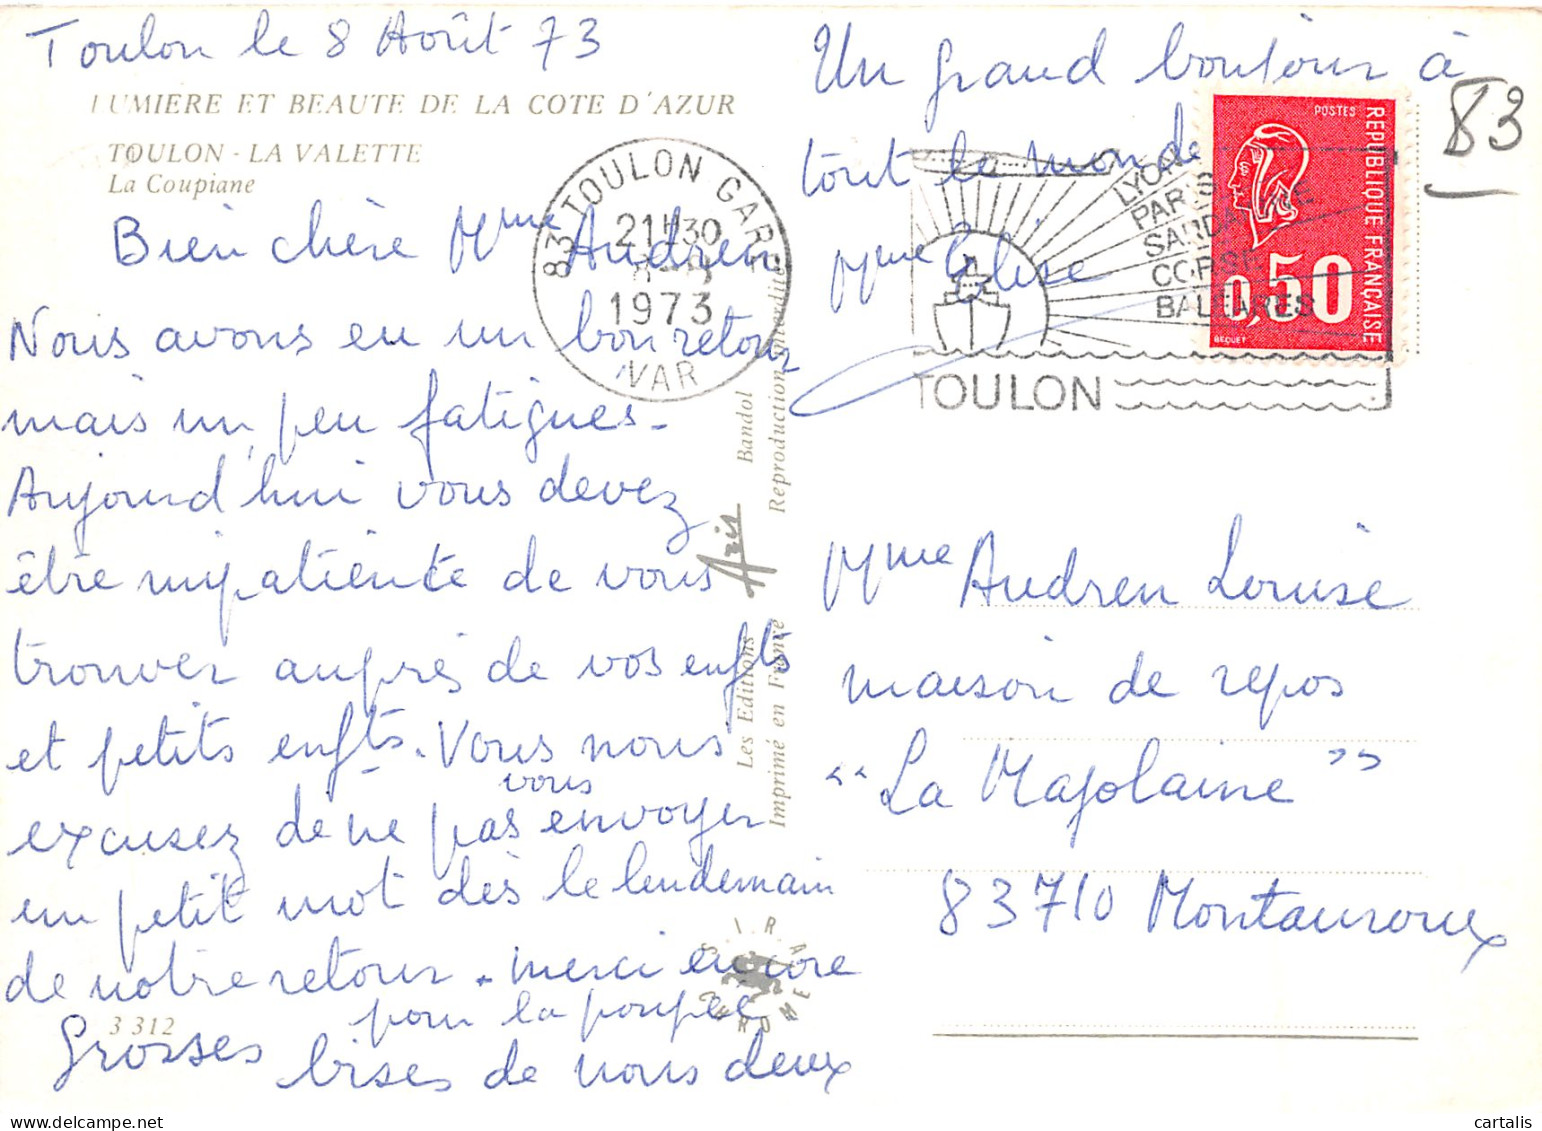 Toulon le 8 Août 73
LUMIERE ET BEAUTE DE LA COTE D'AZUR
TOULON - LA VALETTE
La Coupiane
Bien chère Mme Andren
Nous avons eu un bon retour
mais un peu fatigues.
Aujourd'hui vous devez
être impatiente de vous
trouver auprès de vos enfts
et petits enfts. Vous nous
excusez de ne pas vous envoyer
un petit mot dès le lendemain
de notre retour. merci encore
pour la poupée
Grosses bises de nous deux
3 312
Un grand bonjour à
tout le monde
Mme
83
83 TOULON GARE
21H30
8-8
1973
VAR
LYON
PARIS
SARDAIGNE
CORSE
BALEARES
TOULON
POSTES
REPUBLIQUE FRANCAISE
0,50
BEQUET
Les Editions Aris Bandol
Imprimé en France Reproduction interdite
SIRA CHROME
Mme Andren Louise
maison de repos
"La Majolaine"
83710 Montauroux
cartalis.com